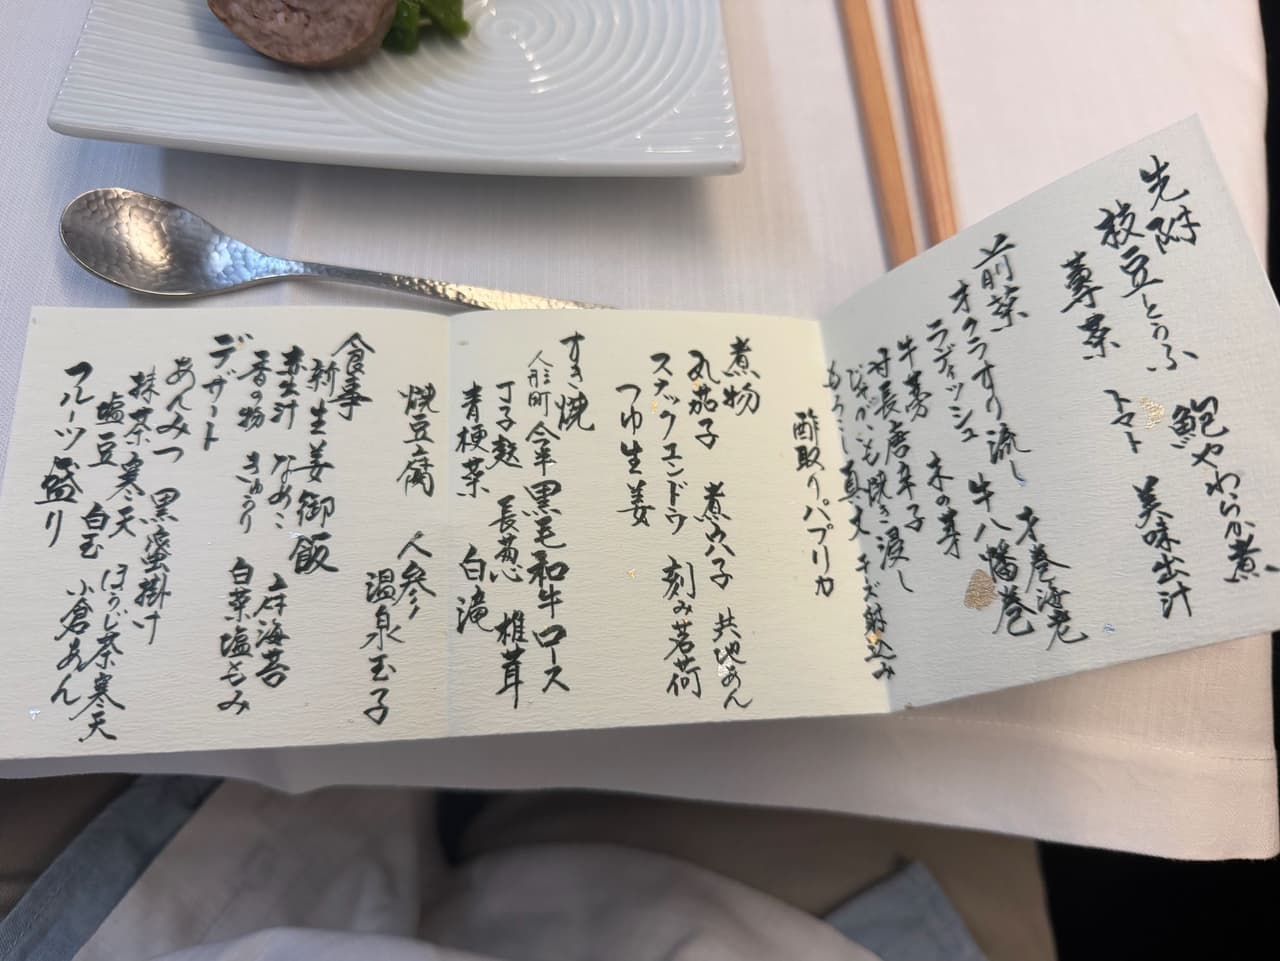 先附
枝豆とうふ 鮑やわらか煮
蓴菜 トマト 美味出汁
前菜
オクラすり流し 才巻海老
ラディッシュ 牛八幡巻
牛蒡 木の芽
甘長唐辛子
じゃがいも焼き浸し
もろこし真丈チーズ射込み
酢取りパプリカ
煮物
丸茄子 煮穴子 共地あん
スナックエンドウ 刻み茗荷
つゆ生姜
すき焼
人形町今半黒毛和牛ロース
丁子麩 長葱 椎茸
青梗菜 白滝
焼豆腐 人参
温泉玉子
食事
新生姜御飯
赤出汁 なめこ 岩海苔
香の物 きゅうり 白菜塩もみ
デザート
あんみつ 黒蜜掛け
抹茶寒天 ほうじ茶寒天
塩豆 白玉 小倉あん
フルーツ盛り